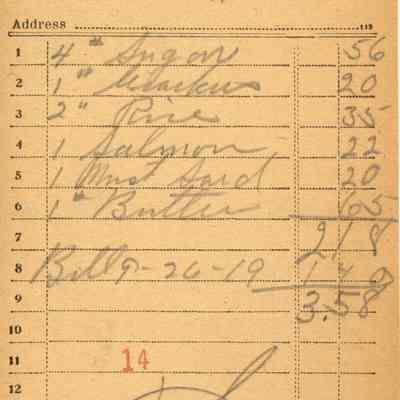 Address 19
1 4 " Sugar 56
2 1 " Crackers 20
3 2 " Rice 35
4 1 Salmon 22
5 1 Must Sard 20
6 1 " Butter 65
7 218
8 Bill 9-26-19 140
9 3.58
10
11 14
12